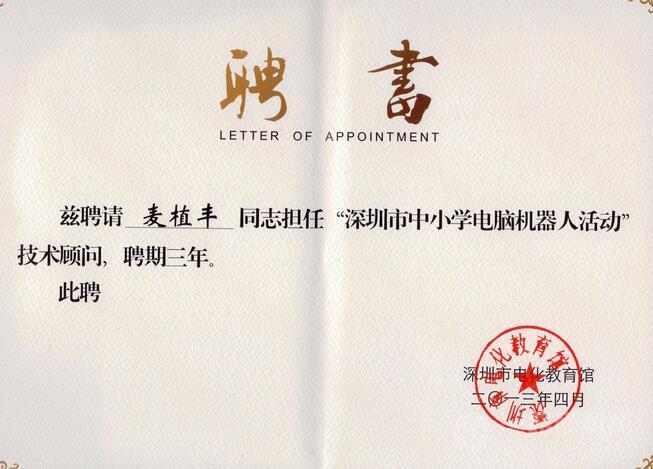 聘书
LETTER OF APPOINTMENT
兹聘请 麦植丰 同志担任“深圳市中小学电脑机器人活动”
技术顾问，聘期三年。
此聘
深圳市电化教育馆
二〇一三年四月
深圳市电化教育馆